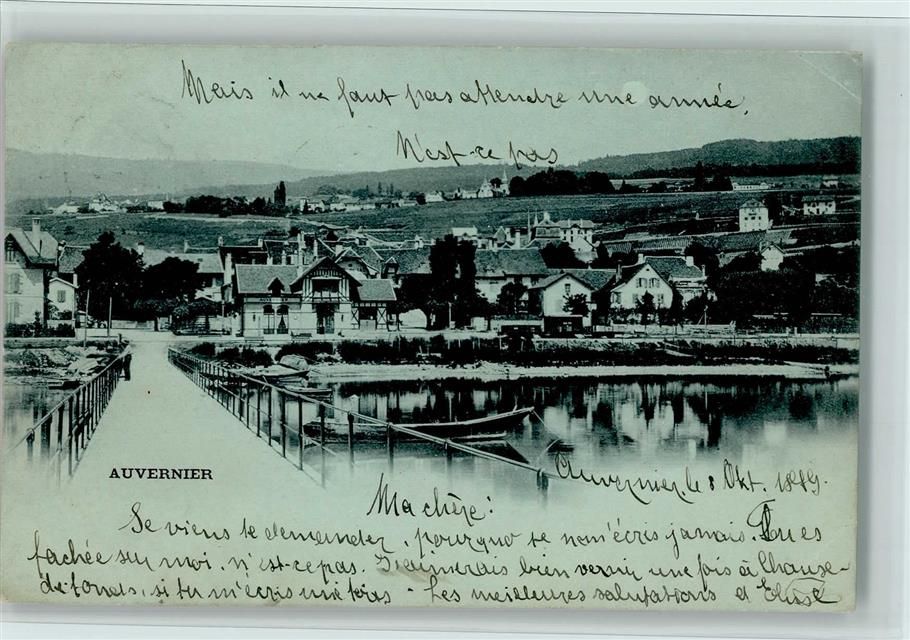 Mais il ne faut pas attendre une année,
N'est-ce pas
AUVERNIER
Auvernier, le 8 Okt. 1899.
Ma chère:
Je viens te demander, pourquo te nom'écris jamais. Tu es
fachée sur moi, n'est-ce pas. J'aimerais bien venir une fois à Chaux-
de-fonds, si tu m'écris une fois - Les meilleures salutations d' Elise